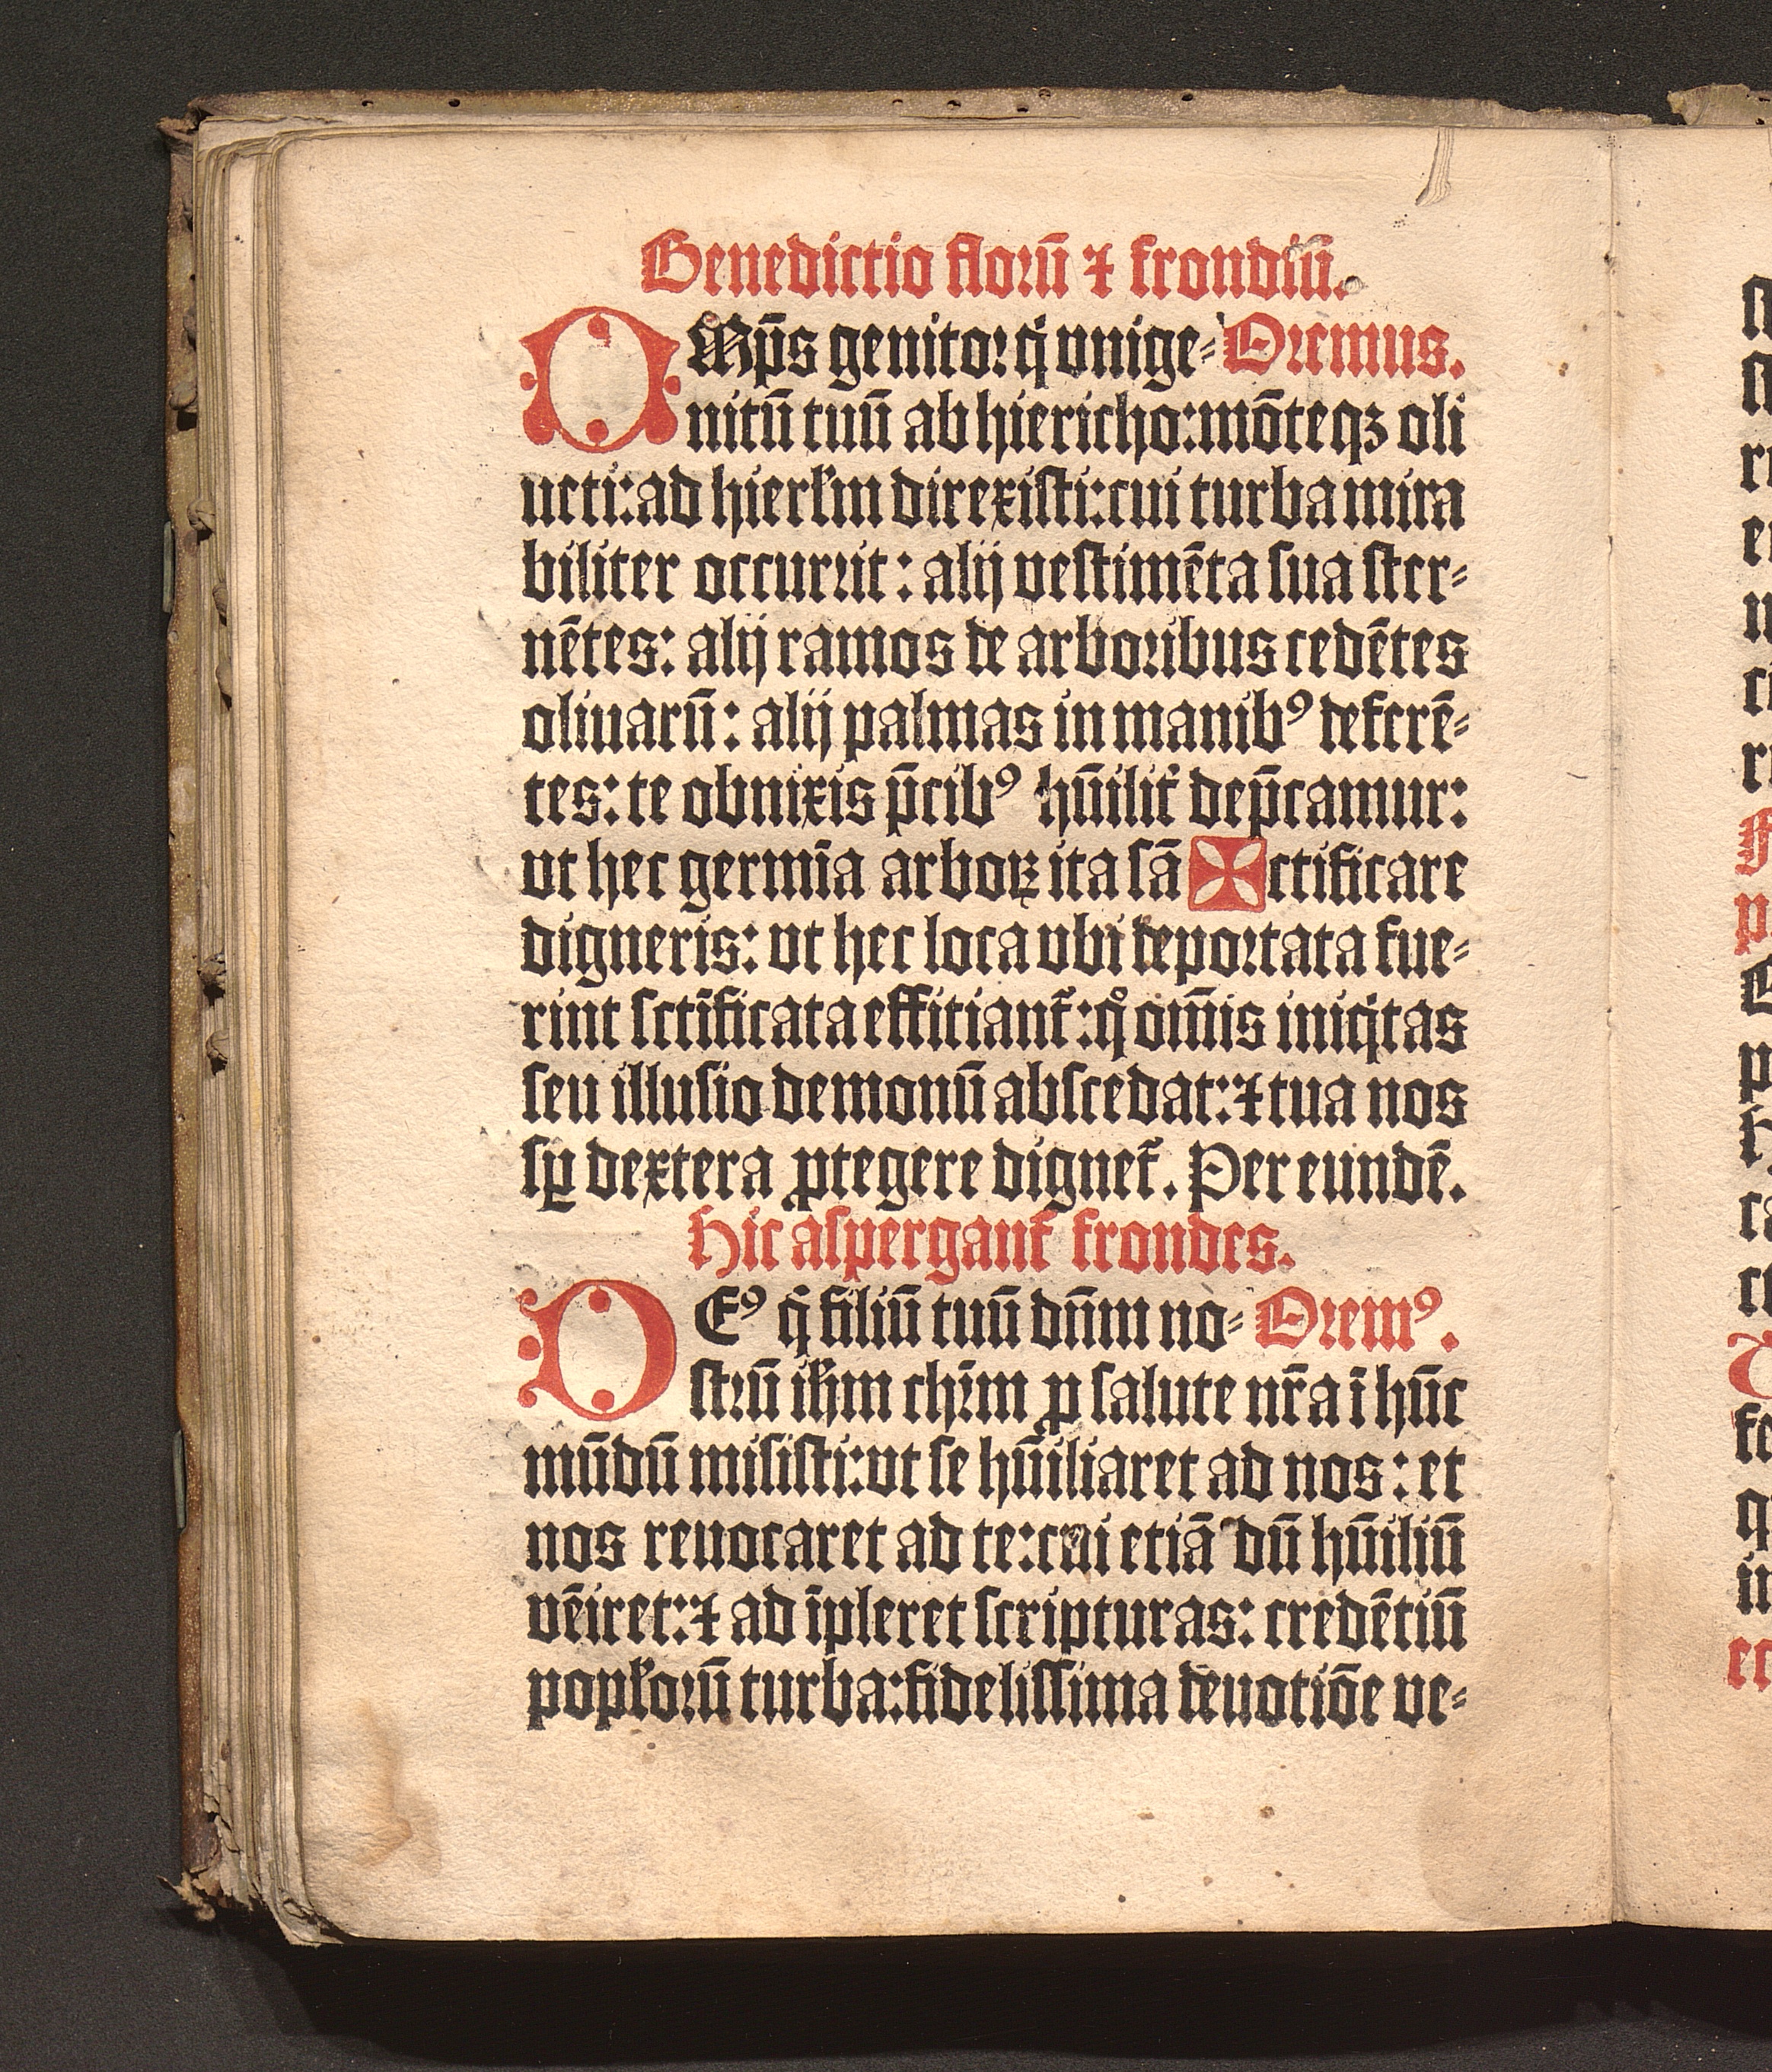 Benedictio florū ⁊ frondiū.
OMp̄s genitor q̇ vnige⸗ Oremus.
nitū tuū ab hiericho: mōteqꝫ oli
ueti: ad hierl̄m direxisti: cui turba mira
biliter occurrit: alij vestimēta sua ster⸗
nētes: alij ramos de arboribus cedētes
oliuarū: alij palmas in manibꝰ deferē⸗
tes: te obnixis p̄cibꝰ hūilit̄ dep̄camur:
vt hec germīa arboꝝ ita sā ✠ ctificare
digneris: vt hec loca vbi deportata fue⸗
rint sctīficata effitiant̄: qͦ om̄is iniq̇tas
seu illusio demonū abscedat: ⁊ tua nos
sꝑ dextera ꝓtegere dignet̄. Per eundē.
Hic aspergant̄ frondes.
DEꝰ q̇ filiū tuū dn̄m no⸗ Oremꝰ.
strū ih̄m chr̄m ꝓ salute nr̄a ī hūc
mūdū misisti: vt se hūiliaret ad nos: et
nos reuocaret ad te: cui etiā dū hūiliū
vēiret: ⁊ ad īpleret scripturas: credētiū
popl̄orū turba: fidelissima deuotiōe ve⸗